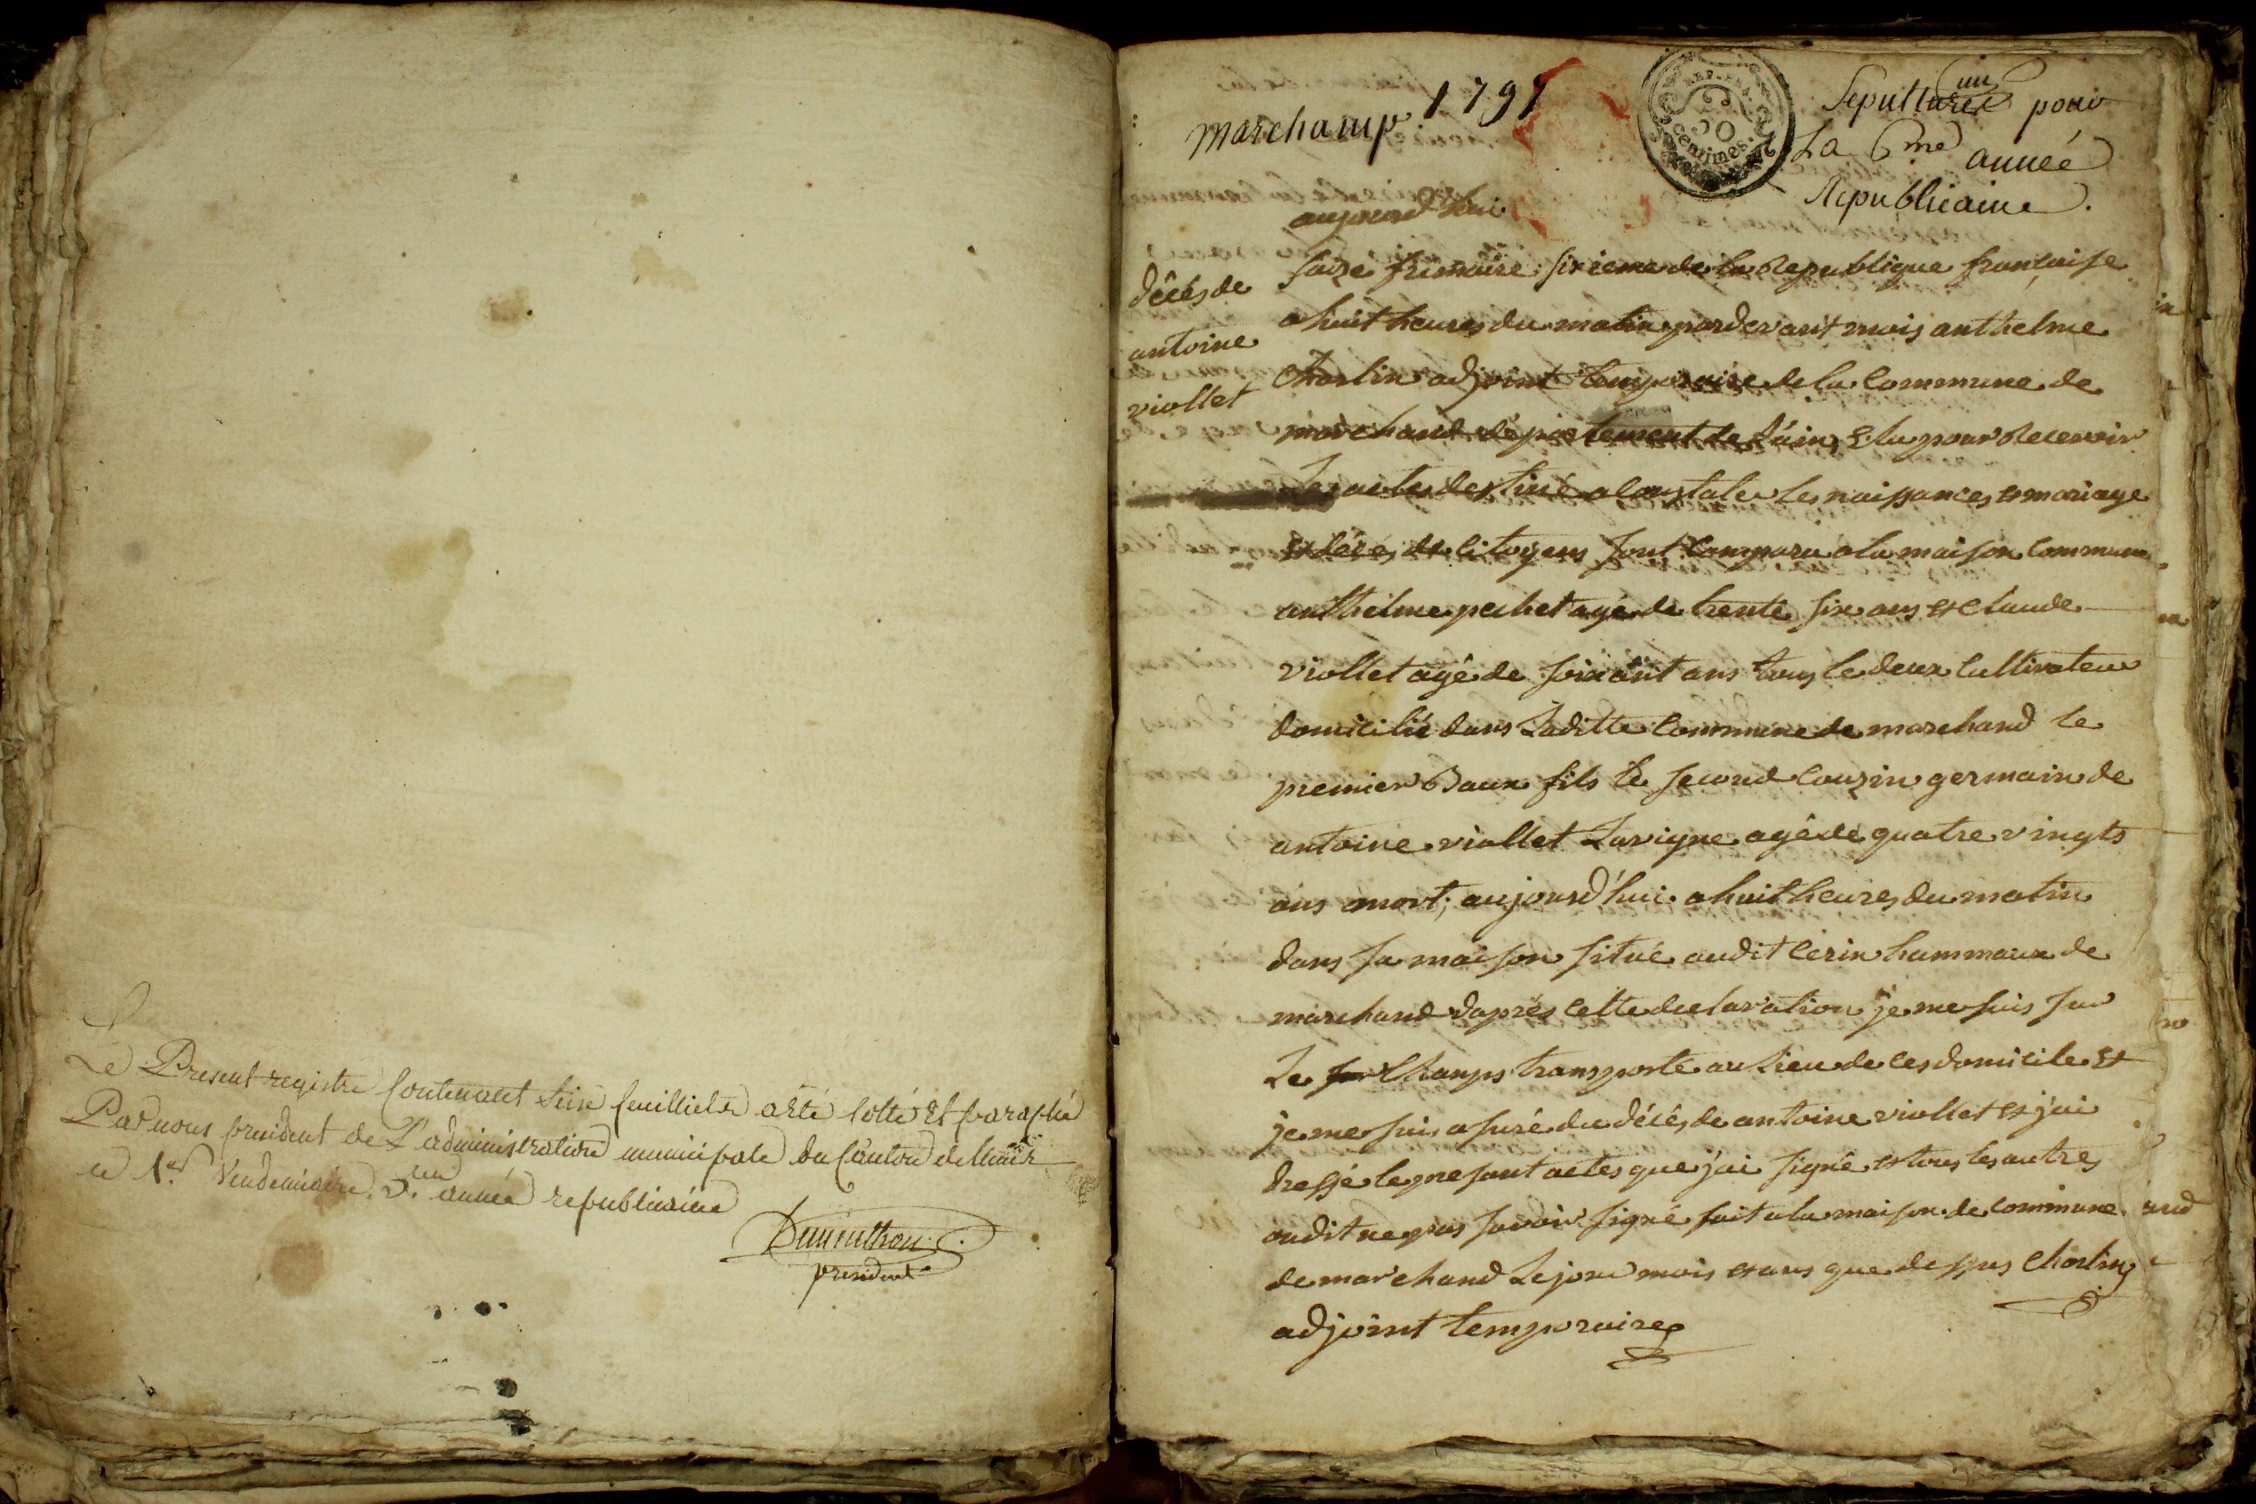 Le Present registre Contenant Seize feuilliets a été Cotté Et paraphé
Par nous president de L'administration municipale du Canton de
ce 1.er Vendemiaire année republicaine
president
marchamp 1797
un
Sepulture pour
La 6me année
Republicaine.
REP.
50
centimes
décés de
antoine
viollet
aujourd'hui
saize frimaire sixieme de la Republique française
a huit heures du matin pardevant mois anthelme
Charlin adjoint temporaire de la Commune de
marchand département de L'ain, Elu pour Recevoir
Les actes destiné a Constater les naissances et mariage
et décés de Citoyens sont Comparu a la maison Commune
anthelme pechet agé de trente six ans et Claude
viollet agé de soixant ans tous le deux Cultivateur
domicilié dans Laditte Commune de marchand le
premier Baux fils le second Couzin germain de
antoine viollet Lavigne agé de quatre vingts
ans mort; aujourd'hui a huit heures du matin
dans sa maison situé audit Cerin hammaux de
marchand d'aprés Cette declaration je me suis sur
Le Champs transporté au Lieu de ces domicile Et
je me suis asuré du décés de antoine viollet et j'ai
dressé le presant actes que j'ai signé et tous les autres
ondit ne pas savoir signé fait a la maison de commune
de marchand Le jour mois et ans que dessus Charlin
adjoint temporaire